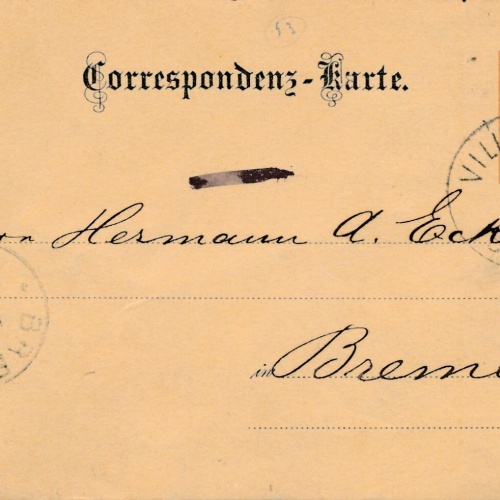 53
Correspondenz-Karte.
VILL
on Hermann A. Eck
BRE
in Breme